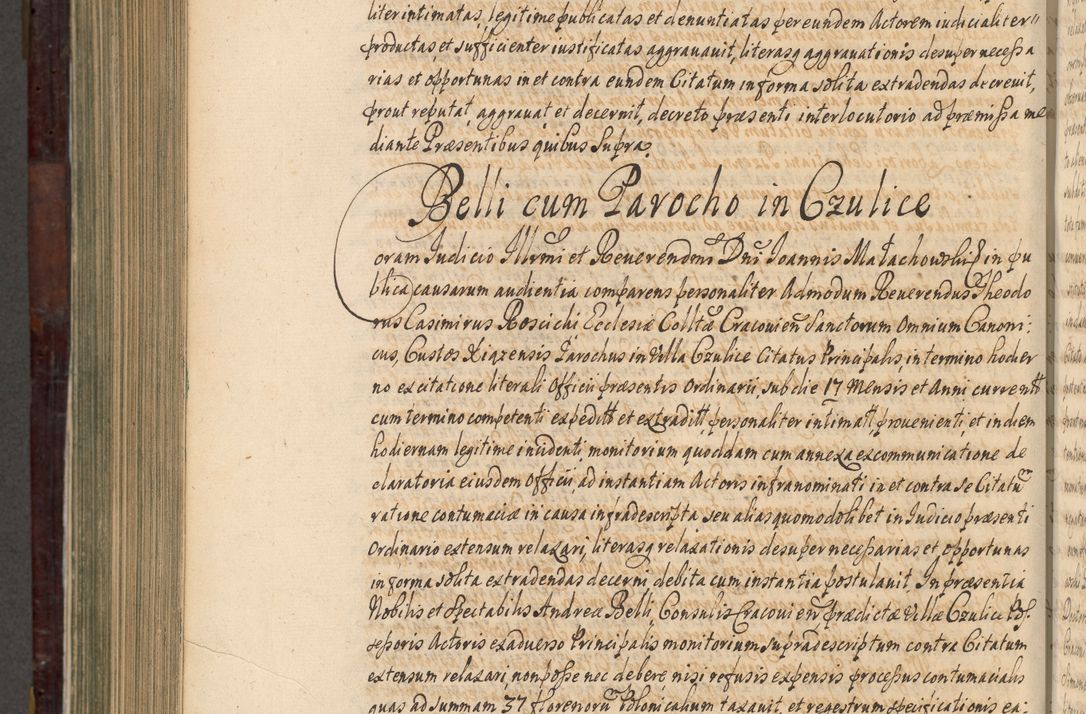 liter intimatas, legitime publicatas et denuntiatas per eundem Actorem iudicialiter
productas et sufficienter iustificatas aggravavit, literasq aggravationis desuper necessa
rias et opportunas in et contra eundem Citatum in forma solita extradendas decrevit,
prout reputat, aggravat et decernit, decreto præsenti interlocutorio ad præmissa me
diante Præsentibus quibus Supra.
Belli cum Parocho in Czulice
Coram Judicio Illrmi et Reverendmi Dni Joannis Małachowski in pu
blica causarum audientia comparens personaliter Admodum Reverendus Theodo
rus Casimirus Roscicki Ecclesiæ Colltæ Cracovien Sanctorum Omnium Canoni:
cus, Custos Xiązensis Parochus in Villa Czulice Citatus Principalis, in termino hodier
no ex citatione literali Officii præsentis Ordinarii, sub die 17 Mensis et Anni current
cum termino competenti expedit et extradit, personaliter intimat, provenienti, et in diem
hodiernam legitime incidenti, monitorium quoddam cum annexa excommunicatione de
claratoria eiusdem Officii, ad instantiam Actoris infranominati in et contra se Citatu
ratione contumaciæ in causa infradescripta, seu alias quomodolibet in Judicio præsenti
Ordinario extensum relaxari, literasq relaxationis desuper necessarias et opportunas
in forma solita extradendas decerni debita cum instantia postulavit, In præsentia
Nobilis et Spectabilis Andreæ Belli, Consulis Cracovien, prædictæ Villæ Czulice Pos
sessoris Actoris ex adverso Principalis monitorium supradescriptum contra Citatum
extensum relaxari, non posse nec debere nisi refusis expensis processus contumacialis
quas ad summam 37 florenoru Polonicalium taxavit, et regestrum specificationis ea: